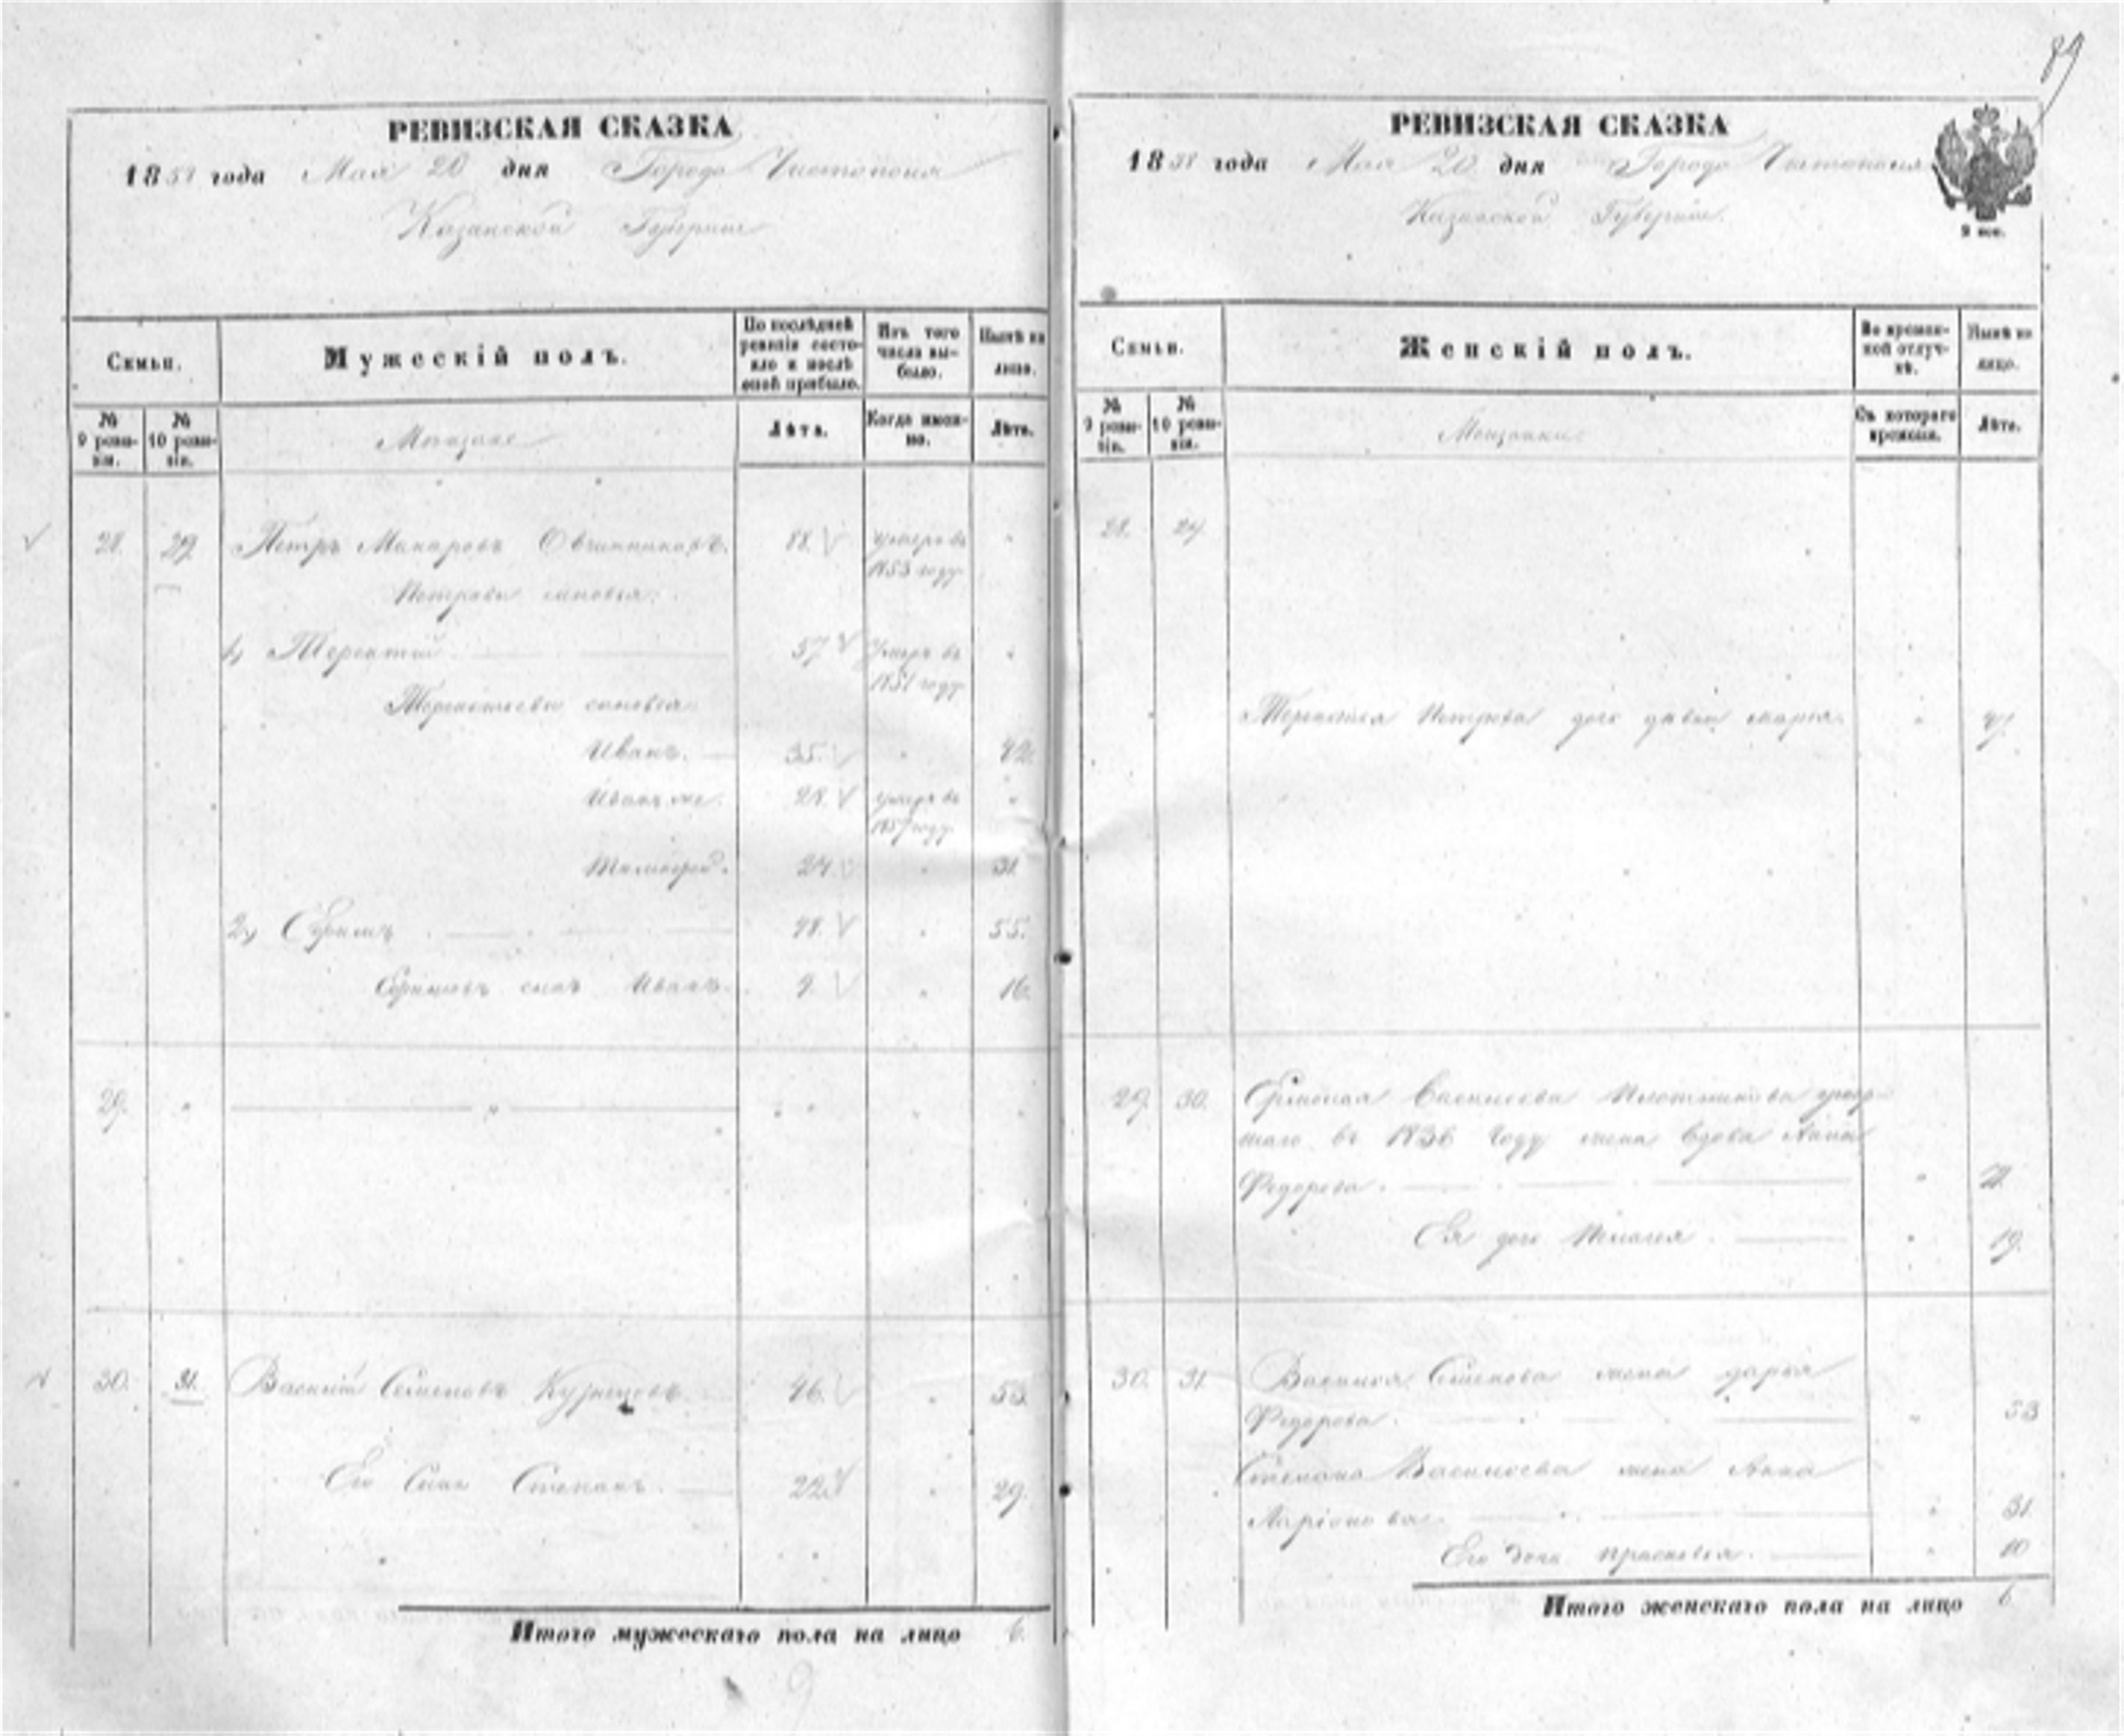 89
РЕВИЗСКАЯ СКАЗКА
1858 года Мая 20 дня Города Чистополя
Казанской Губернии
Семьи.
Мужескій полъ.
По послѣдней ревизіи состояло и послѣ оной прибыло.
Изъ того числа выбыло.
Нынѣ на лицо.
№ 9 ревизіи.
№ 10 ревизіи.
Мещане
Лѣта.
Когда именно.
Лѣта.
28. 29. Петръ Макаровъ Овчинниковъ. 88. умеръ въ
1853 году
Петровы сыновья:
1, Терентий 57 Умеръ въ
1851 году
Терентьевы сыновья:
Иванъ. 35. 42.
Иванъ же. 28. умеръ въ
1857 году
24. 31
2, Ефимъ 48. 55.
Ефимовъ сынъ Иванъ. 9. 16.
29.
30. 31. Василий Семеновъ Кузнецовъ. 46. 53.
Его Сынъ Степанъ. 22 29.
Итого мужескаго пола на лицо 6.
РЕВИЗСКАЯ СКАЗКА
1858 года Мая 20 дня Города Чистополя
Казанской Губернии.
Семьи.
Женскій полъ.
Во временной отлучкѣ.
Нынѣ на лицо.
№ 9 ревизіи.
№ 10 ревизіи.
Мещанки
Съ котораго времени.
Лѣта.
28. 29
Терентья Петрова дочь Марья.
29. 30. Васильева Плотникова умер-
шаго въ 1836 году жена вдова Анна
Федорова.
Ея дочь Пелагея 19.
30. 31. Василья жена Дарья
Федорова. 53
Степана Васильева жена Анна
Ларіонова. 31
Его дочь Прасковья. 10
Итого женскаго пола на лицо 6